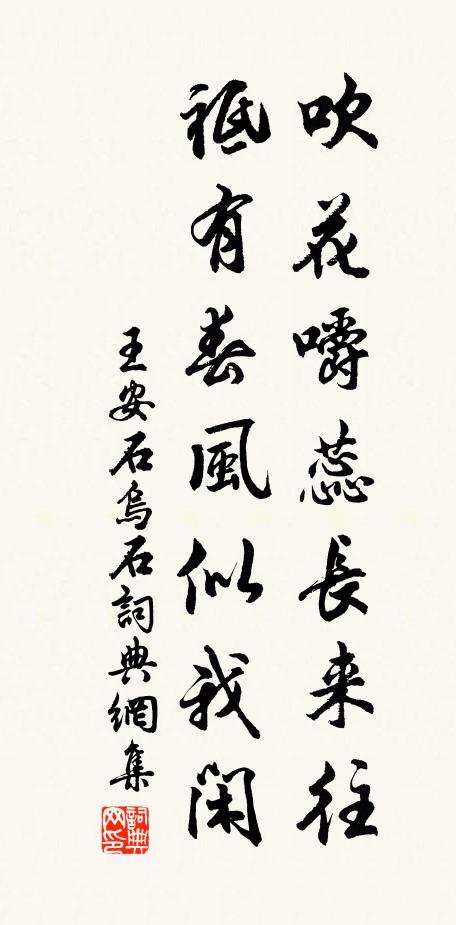 吹花嚼蕊長来往
祗有春風似我閑
王安石烏石詞典網集
詞典网印